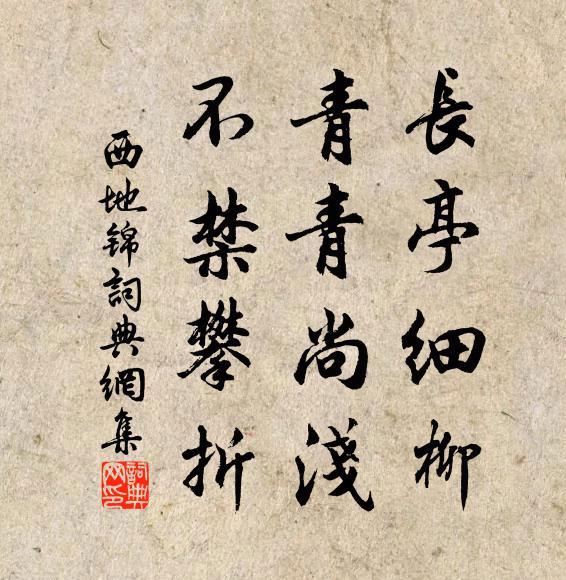 長亭細柳
青青尚淺
不禁攀折
西地錦詞典網集
詞典网印